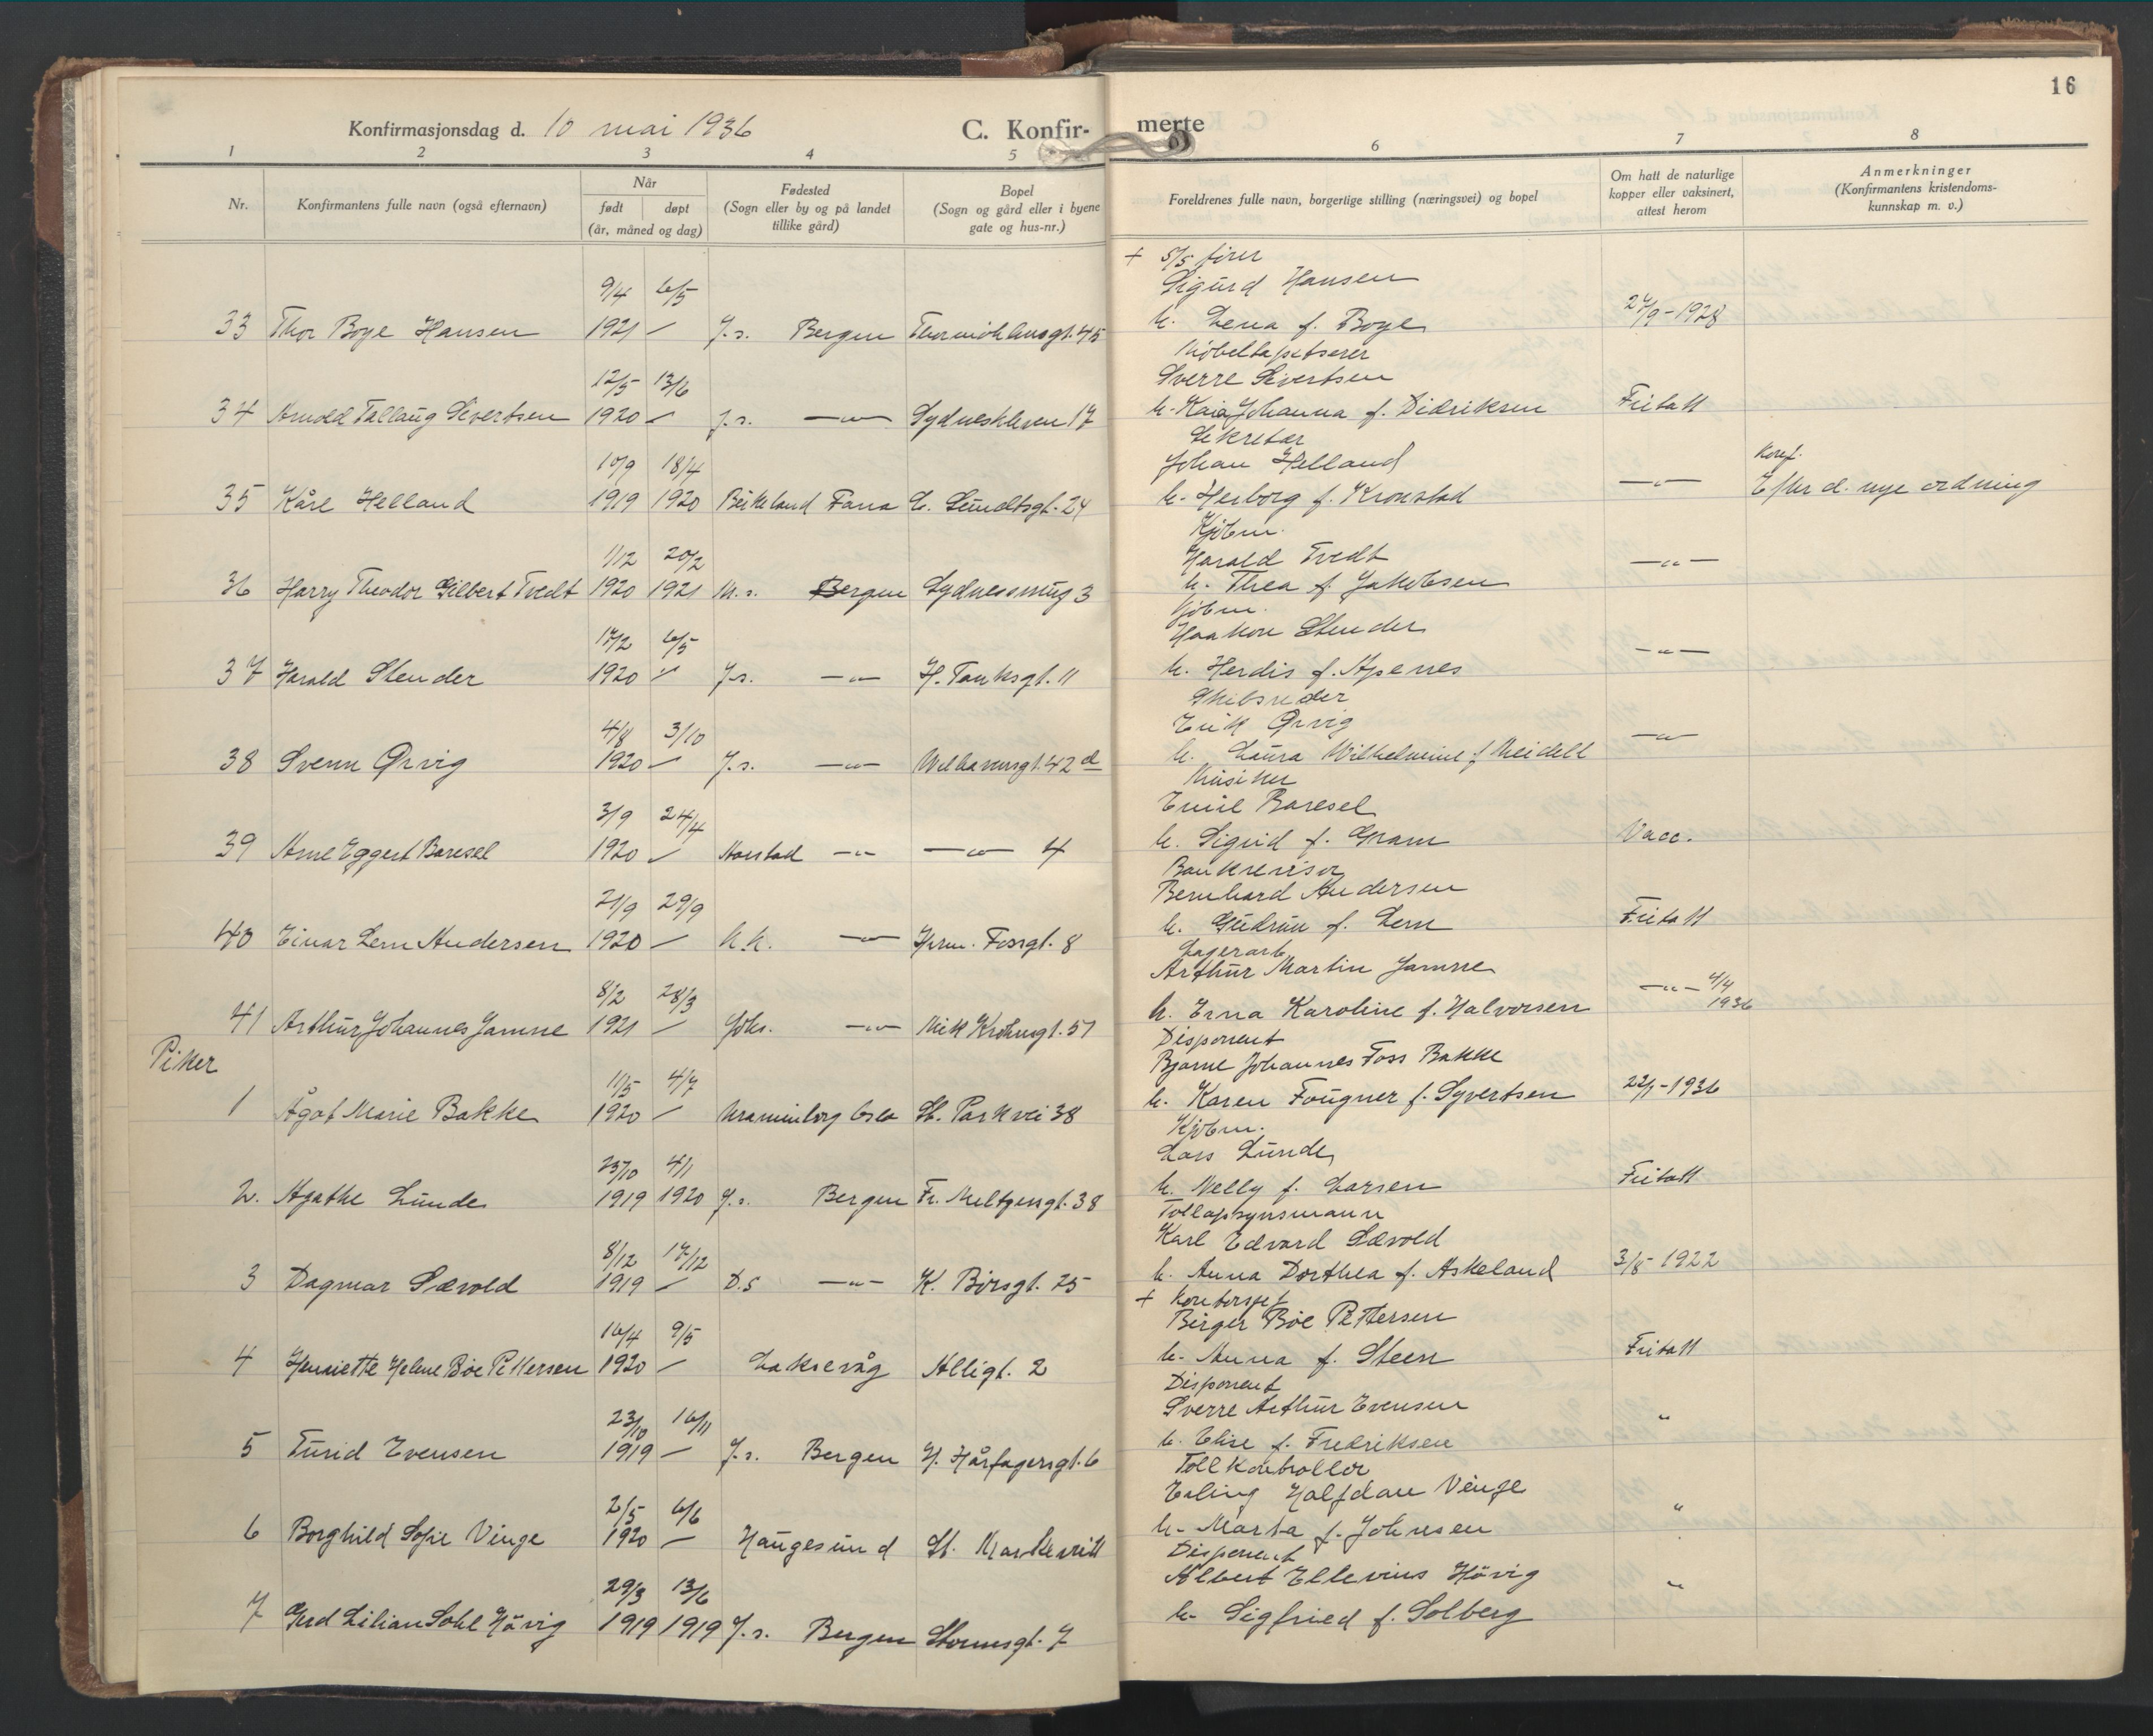 16
Konfirmasjonsdag d. 10 mai 1936
C. Konfir-merte
1 2 3 4 5 6 7 8
Nr.
Konfirmantens fulle navn (også efternavn)
Når
født døpt
(år, måned og dag)
Fødested
(Sogn eller by og på landet
tillike gård)
Bopel
(Sogn og gård eller i byene
gate og hus-nr.)
Foreldrenes fulle navn, borgerlige stilling (næringsvei) og bopel
Om hatt de naturlige
kopper eller vaksinert,
attest herom
Anmerkninger
(Konfirmantens kristendoms-
kunnskap m. v.)
+ S/S fører
9/4 6/5 Sigurd Hansen
33 Thor Boye Hansen 1921 – J.s. Bergen Thormöhlensgt. 45 h. Lena f. Boye 27/9-1928
Möbeltapetserer
12/5 13/6 Sverre Sivertsen
34 Arnold Tallaug Sivertsen 1920 – J.s. –"– Sydneskleven 17 h. Kaia Johanna f. Didriksen Fritatt
Sekretær
10/9 18/4 Johan Helland Konf.
35 Kåre Helland 1919 1920 Birkeland Fana E. Sundtsgt. 24 h. Herborg f. Kronstad –"– Efter d. nye ordning
Kjøbm.
11/12 20/2 Harald Tvedt
36 Harry Theodor Gilbert Tvedt 1920 1921 M.s. Bergen Sydnessmug 3 h. Thea f. Jakobsen –"–
Kjøbm.
17/2 6/5 Haakon Stender
37 Harald Stender 1920 " J.s. –"– H. Tanksgt. 11 h. Herdis f. Apenes –"–
Skibsreder
4/8 3/10 Erik Ørvig
38 Svenn Ørvig 1920 – J.s. –"– Welhavensgt. 42 d h. Laura Wilhelmine f. Meidell –"–
Musiker
3/9 24/4 Emil Baresel
39 Arne Eggert Baresel 1920 – Harstad –"– –"– 4 h. Sigrid f. Gram Vacc.
Bankrevisor
21/9 29/9 Bernhard Andersen
40 Einar Lem Andersen 1920 – –"– Herm. Fossgt. 8 h. Gudrun f. Lem Fritatt
Lagerarb.
8/2 28/3 Arthur Martin Jamne
41 Arthur Johannes Jamne 1921 – Johs. –"– Nick Krohnsgt. 51 h. Erna Karoline f. Halvorsen –"– 4/4 1936
Piker
Disponent
11/5 4/7 Bjarne Johannes Foss Bakke
1 Ågot Marie Bakke 1920 – Uranienborg Oslo St. Parkvei 38 h. Karen Fougner f. Syvertsen 22/1-1936
Kjøbm.
25/10 4/1 Lars Lunde
2. Agathe Lunde 1919 1920 J.s. Bergen Fr. Meltzersgt. 38 h. Nelly f. Larsen Fritatt
Tollopsynsmann
8/12 17/12 Karl Edvard Sævold
3 Dagmar Sævold 1919 – D.S –"– K. Børsgt. 25 h. Anna Dorthea f. Askeland 3/5-1922
+ Kontorsjef
16/4 9/5 Birger Böe Pettersen
4 Henriette Helene Böe Pettersen 1920 – Laksevåg Alligt. 2 h. Anna f. Steen Fritatt
Disponent
23/10 16/11 Sverre Arthur Evensen
5 Turid Evensen 1919 – J.s. Bergen H. Hårfagersgt. 6 h. Elise f. Fredriksen "
Tollkontrollör
2/5 6/6 Erling Halfdan Vinge
6 Borghild Sofie Vinge 1920 – Haugesund St. Markevei h. Marta f. Johnsen "
Disponent
29/3 13/6 Albert Ellevius Hövig
7 Gerd Lilian Sohl Hövig 1919 1919 J.s. Bergen Stormsgt. 7 h. Sigfried f. Solberg "